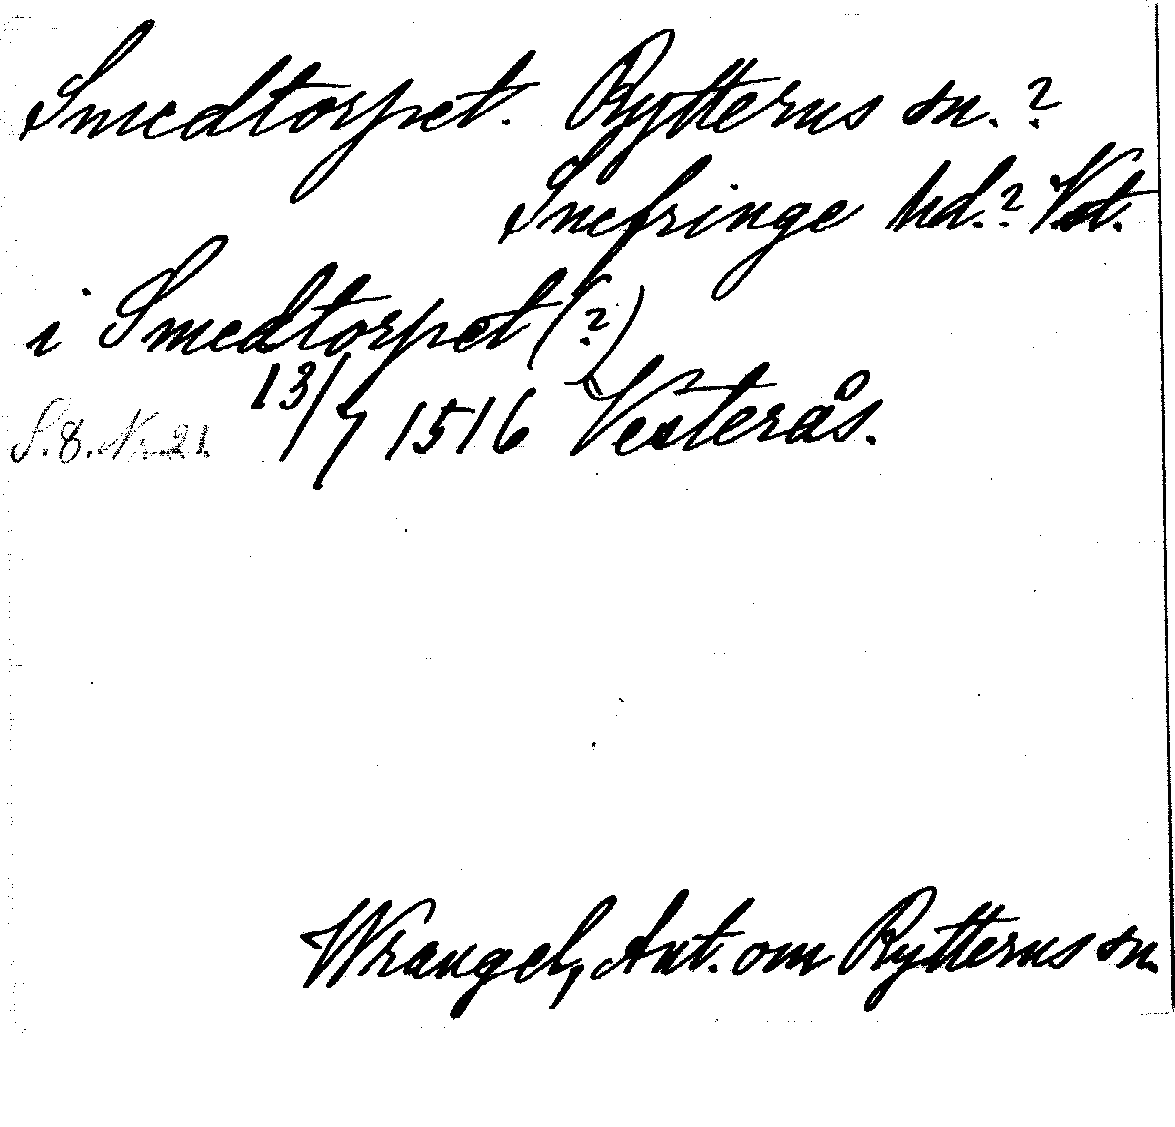 Smedtorpet. Rytterns sn.?
Snefringe hd.? Vst.
i Smedtorpet (?)
S. 8. Nr. 21. 13/7 1516 Vesterås.
Wrangel, Ant. om Rytterns sn.